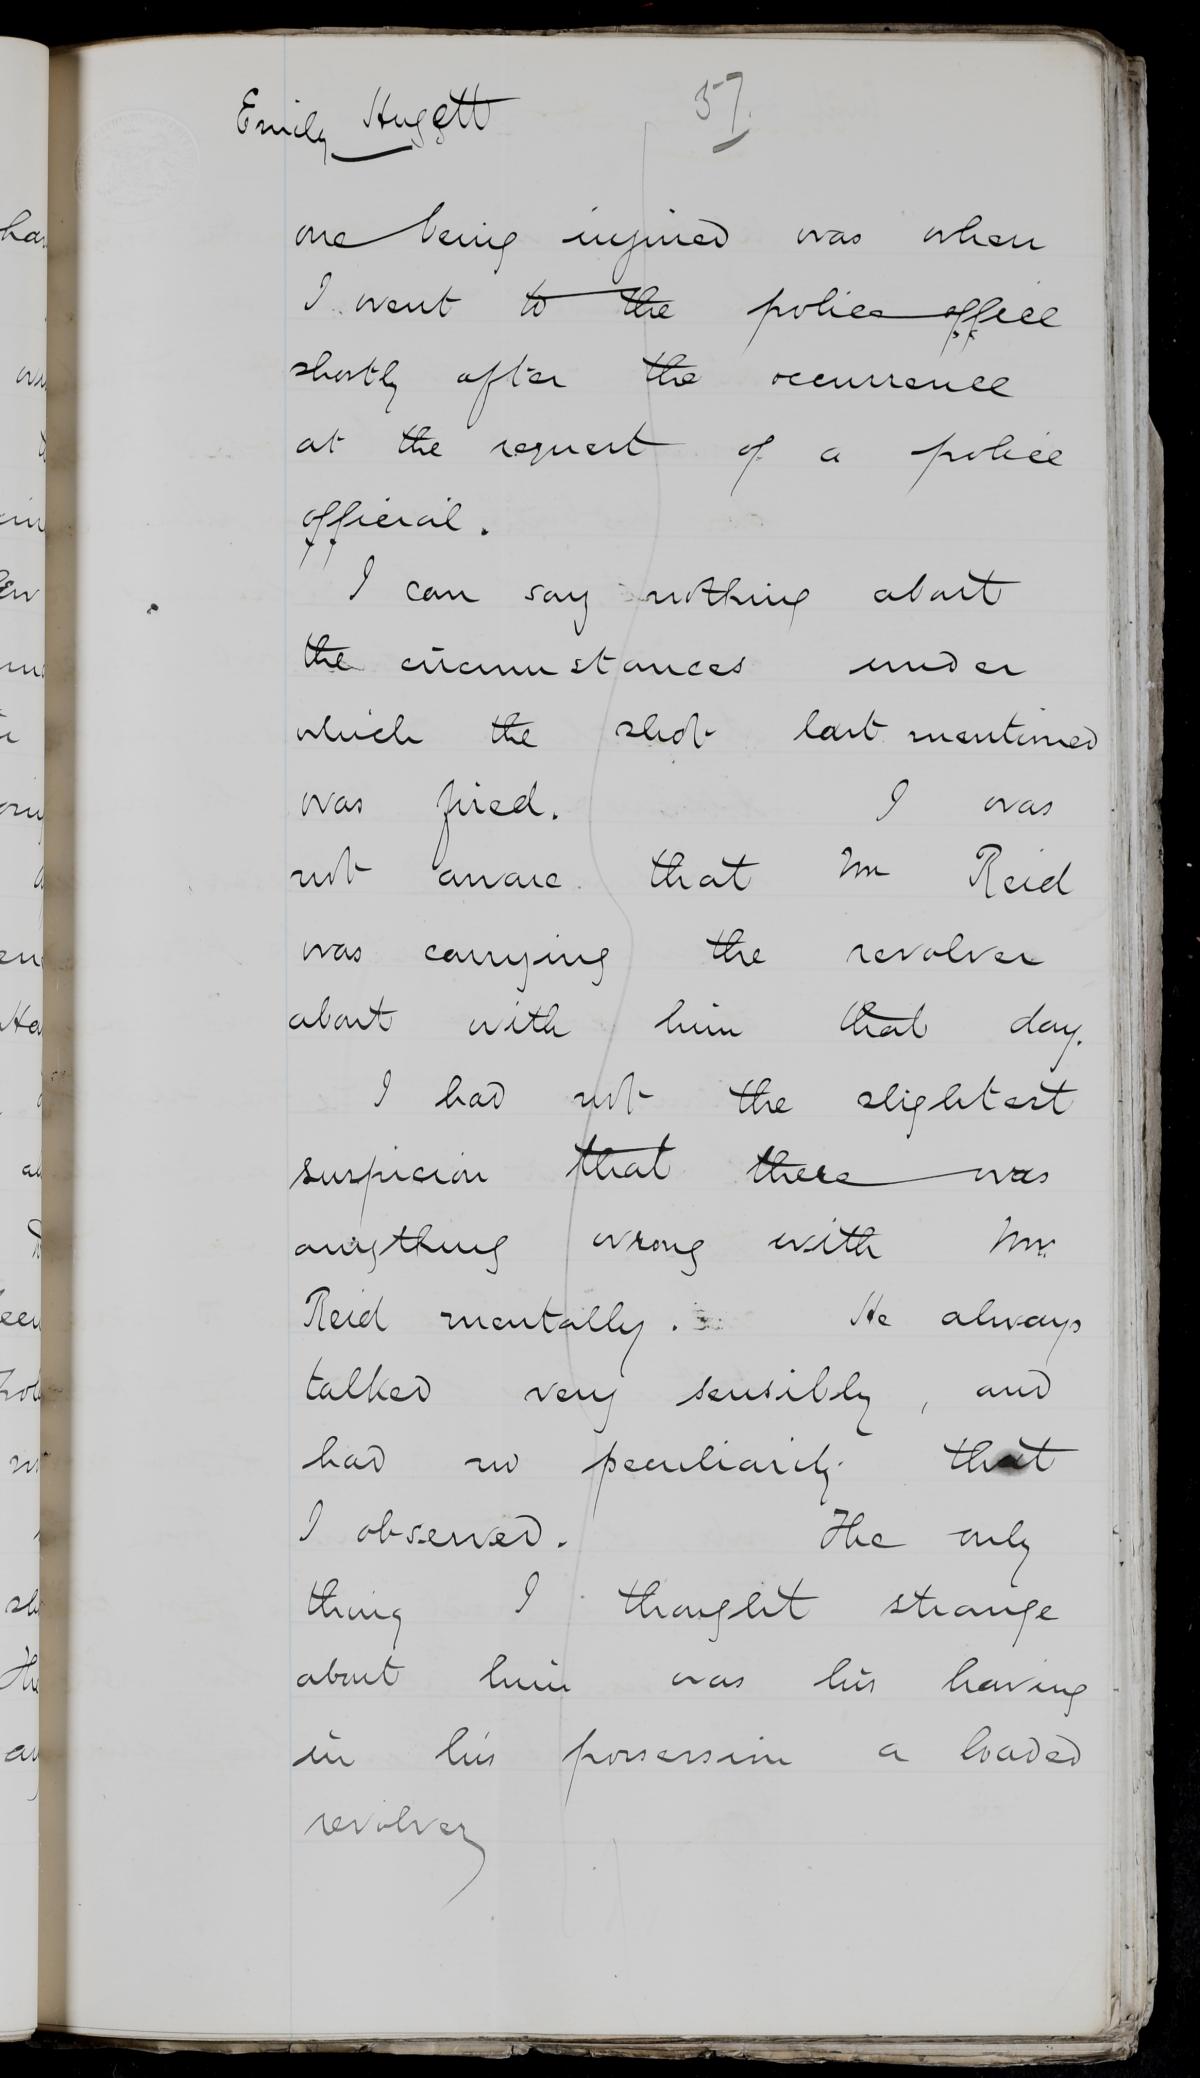 Emily Huggett
57.
one being injured was when
I went to the police office
shortly after the occurrence
at the request of a police
official.
I can say nothing about
the circumstances under
which the shot last mentioned
was fired. I was
not aware that Mr Reid
was carrying the revolver
about with him that day.
I had not the slightest
suspicion that there was
anything wrong with Mr
Reid mentally. He always
talked very sensibly, and
had no peculiarity that
I observed. The only
thing I thought strange
about him was his having
in his possession a loaded
revolver